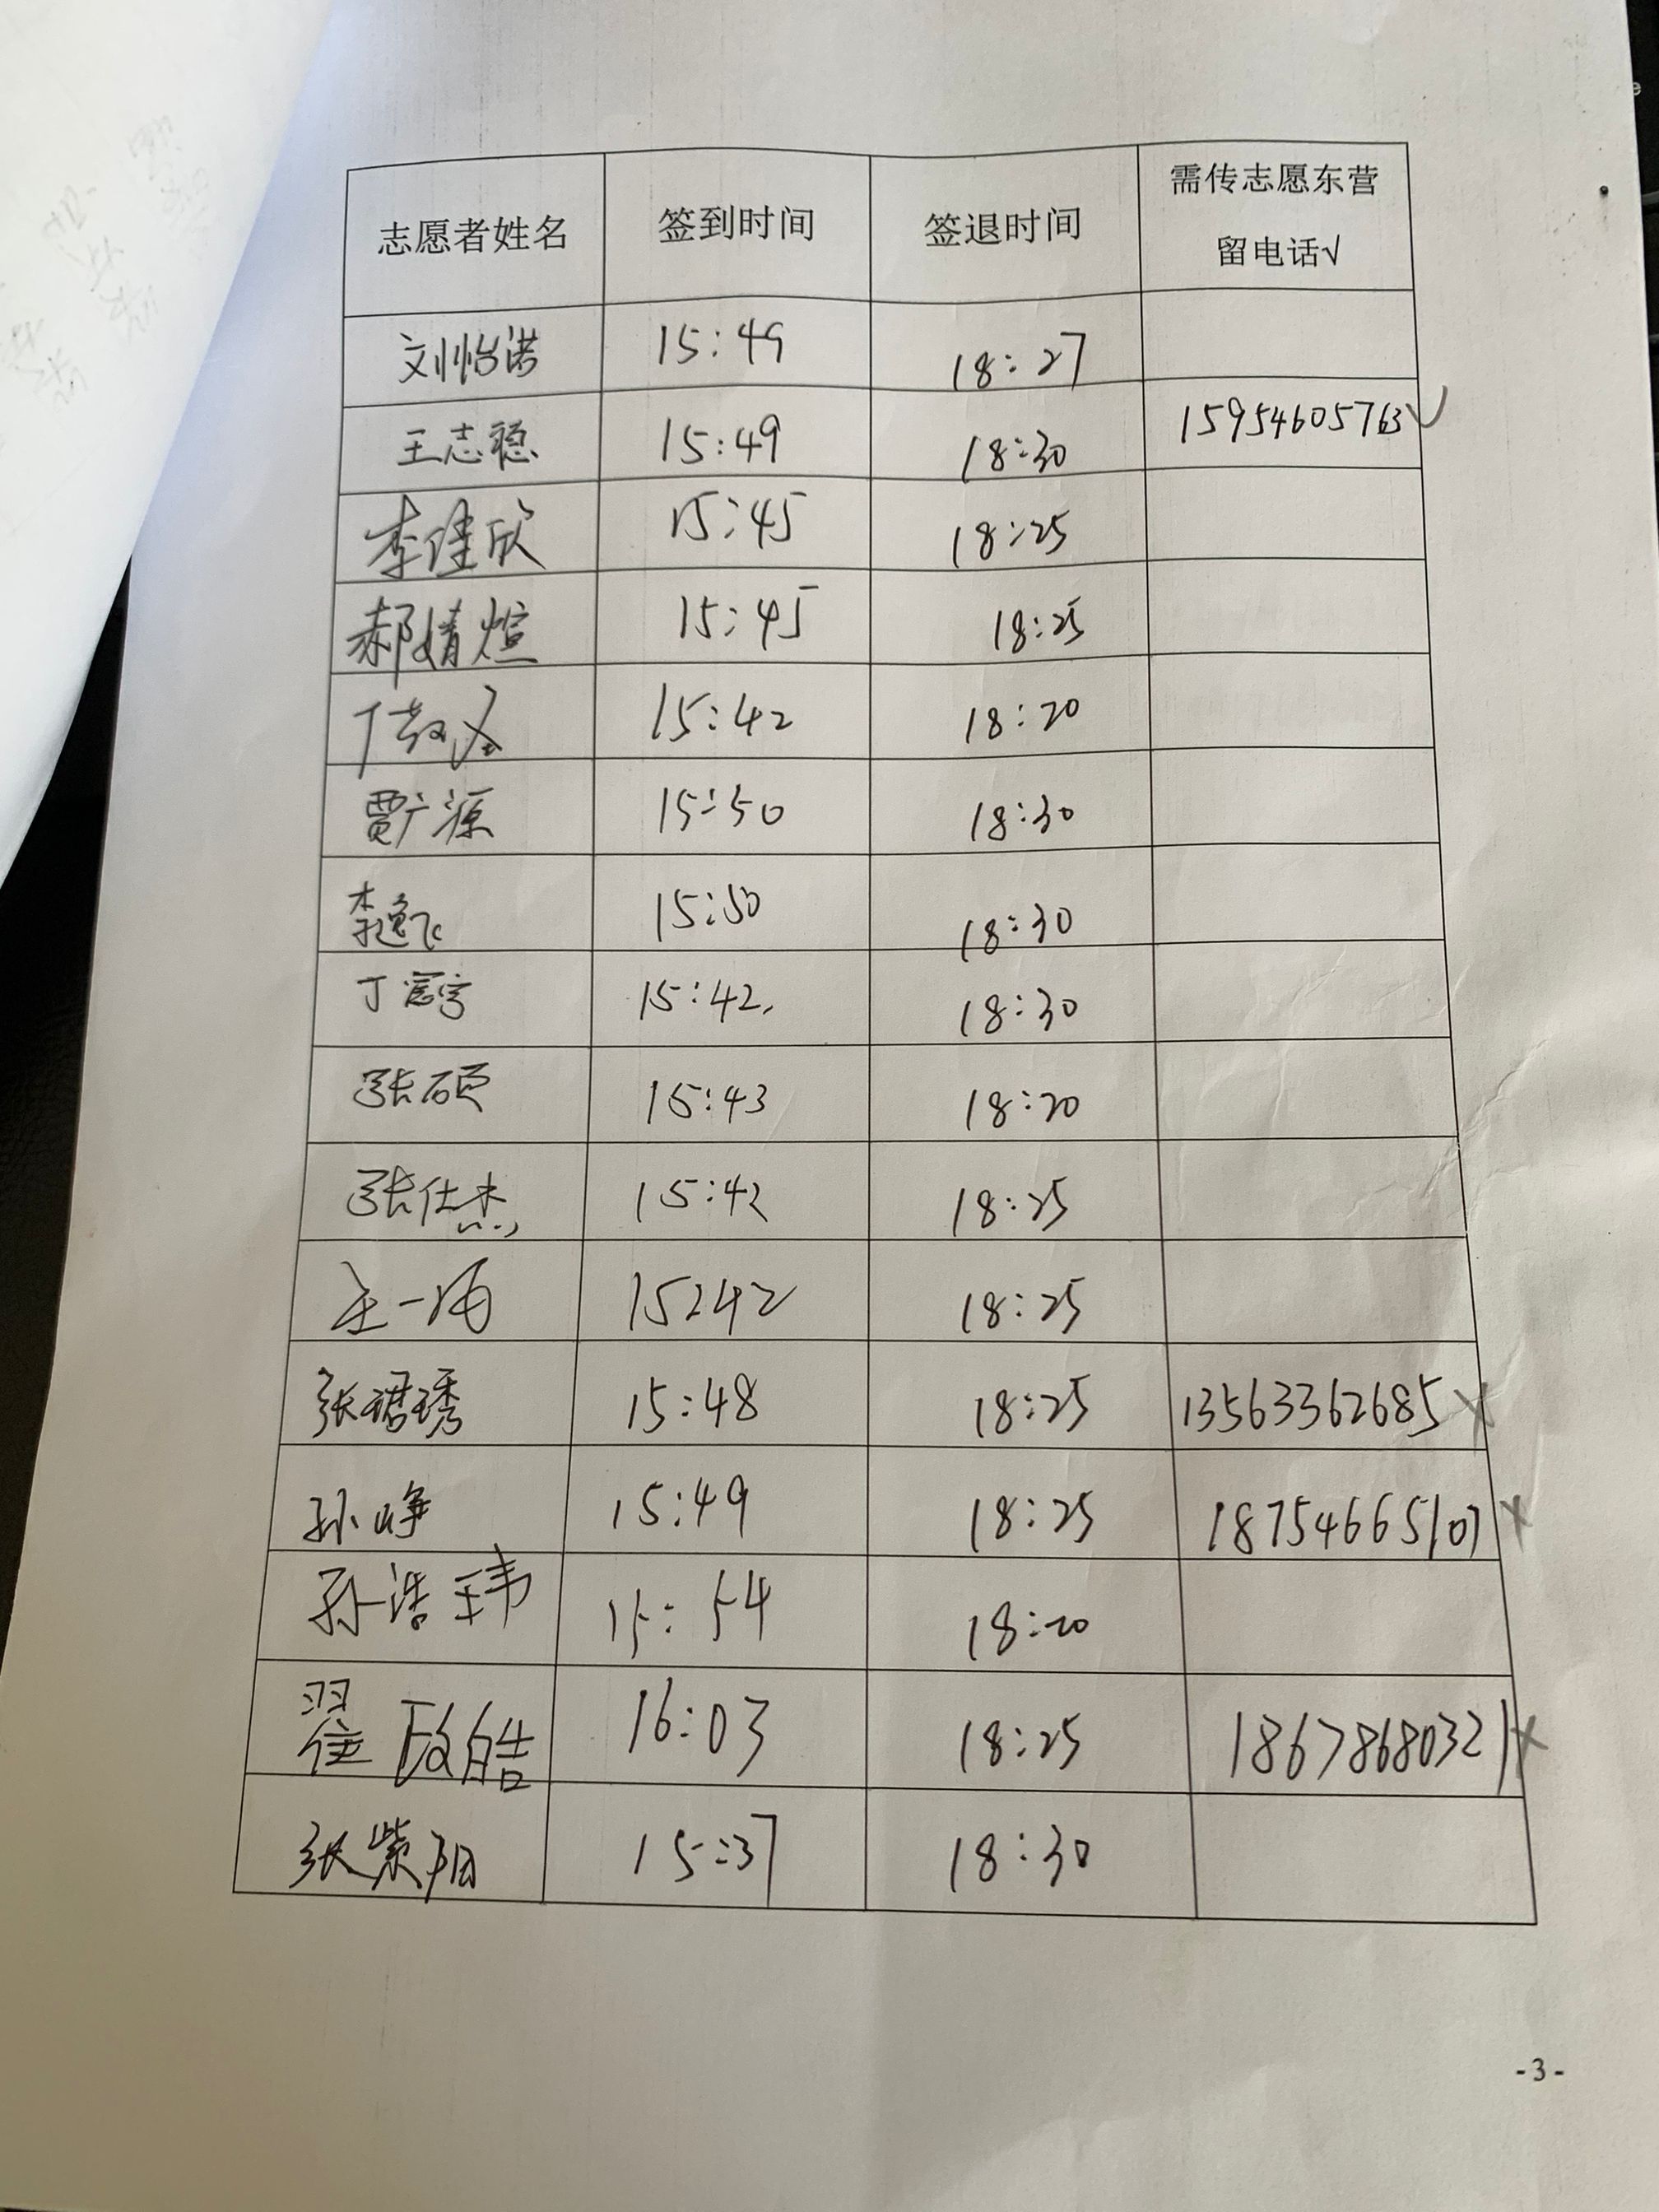 志愿者姓名 签到时间 签退时间 需传志愿东营
留电话√
刘怡诺 15:49 18:27
王志稳 15:49 18:30 15954605763 √
李佳欣 15:45 18:25
郝婧煊 15:45 18:25
15:42 18:20
贾广源 15:50 18:30
李逸飞 15:50 18:30
丁 15:42. 18:30
张硕 15:43 18:20
张仕杰 15:42 18:25
一 15:42 18:25
张珺琇 15:48 18:25 13563362685 ×
孙峥 15:49 18:25 18754665107 ×
孙浩玮 15:54 18:20
翟政皓 16:03 18:25 18678680321 ×
张紫阳 15:37 18:30
-3-